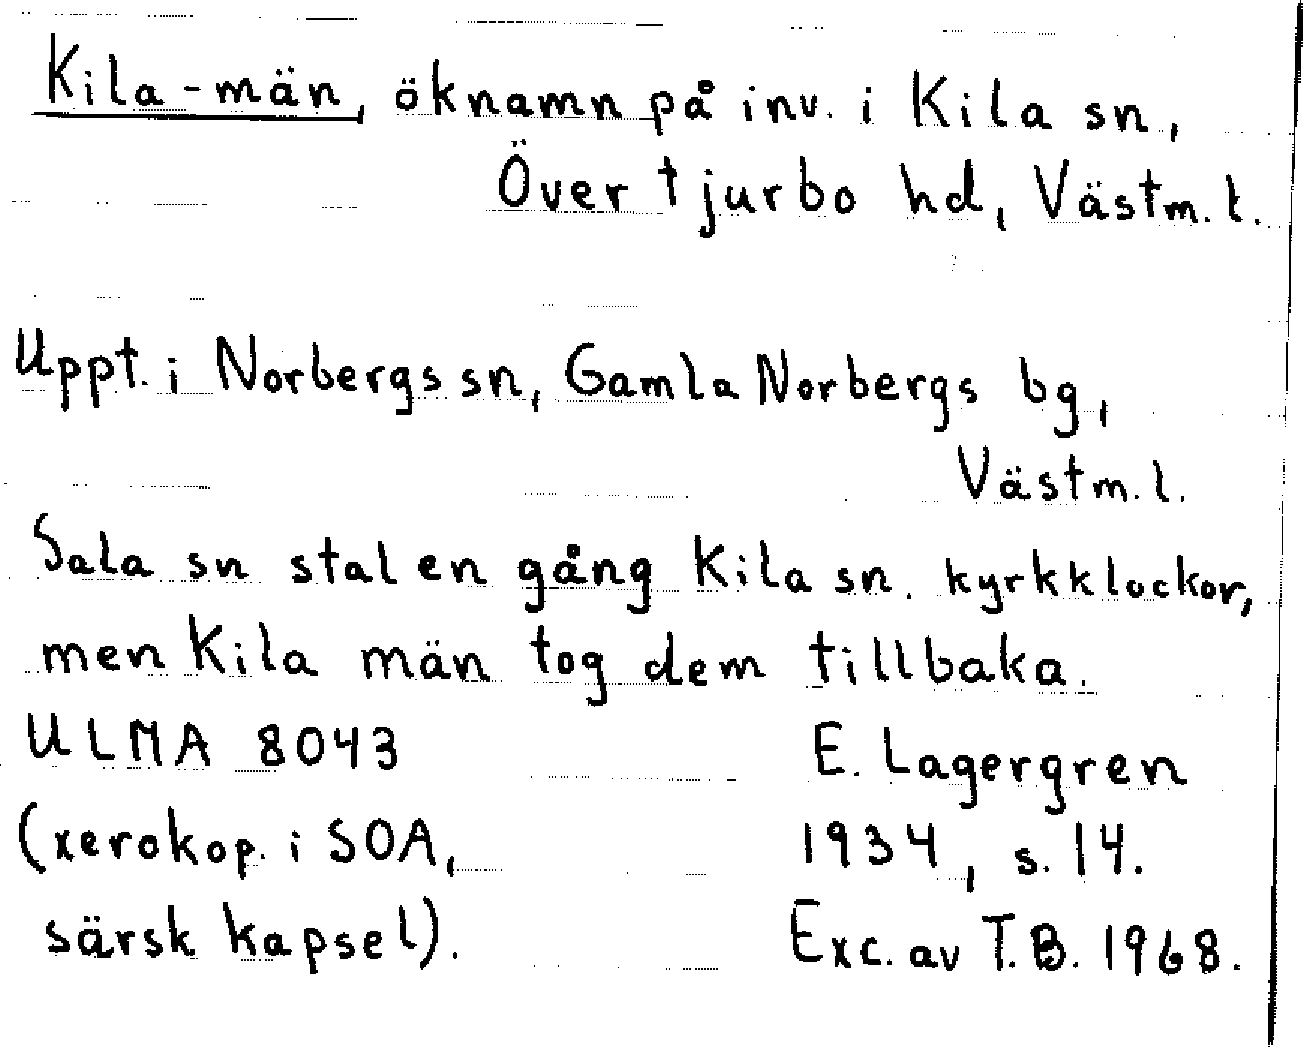 Kila-män, öknamn på inv. i Kila sn,
Över tjurbo hd, Västm. l.
Uppt. i Norbergs sn, Gamla Norbergs bg,
Västm. l.
Sala sn stal en gång Kila sn. kyrkklockor,
men Kila män tog dem tillbaka.
ULMA 8043 E. Lagergren
(xerokop. i SOA, 1934, s. 14.
särsk kapsel). Exc. av T.B. 1968.